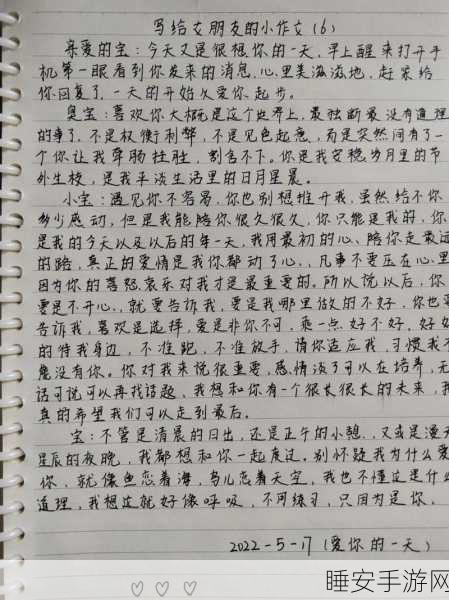 写给女朋友的小作文(6)
亲爱的宝:今天又是很想你的一天,早上醒来打开手
机第一眼看到你发来的消息,心里美滋滋地,赶紧给
你回复了,一天的开始久爱你起步。
臭宝:喜欢你大概是这个世界上,最独断最没有道理
的事了,不是权衡利弊,不是见色起意,而是突然间有了一
个你让我牵肠挂肚,割舍不下。你是我安稳岁月里的节
外生枝,是我平淡生活里的日月星辰。
小宝:遇见你不容易,你也别想推开我,虽然给不你
多少感动,但是我能陪你很久很久,你只能是我的,你
是我的今天以及以后的每一天,我用最初的心,陪你走最远
的路,真正的爱情是我你都动了心,凡事不要压在心里
因为你的喜怒哀乐对我才是最重要的。所以说以后,你
要是不开心,就要告诉我,要是我哪里做的不好,你也要
告诉我,喜欢是选择,爱是非你不可,乖一点好不好,好好
的待我身边,不准跑,不准放手,请你适应我,习惯我不
能没有你。你对我来说很重要,感情淡了可以在培养,无
话可说可以再找话题,我想和你有一个很长很长的未来,我
真的希望我们可以走到最后。
宝:不管是清晨的日出,还是正午的小憩,又或是漫天
星辰的夜晚,我都想和你一起度过。别怀疑我为什么爱
你,就像鱼恋着海,鸟儿恋着天空,我也不懂这是什么
道理,我想这就好像呼吸,不用练习,只因为是你。
2022-5-17(爱你的一天)
睡安手游网